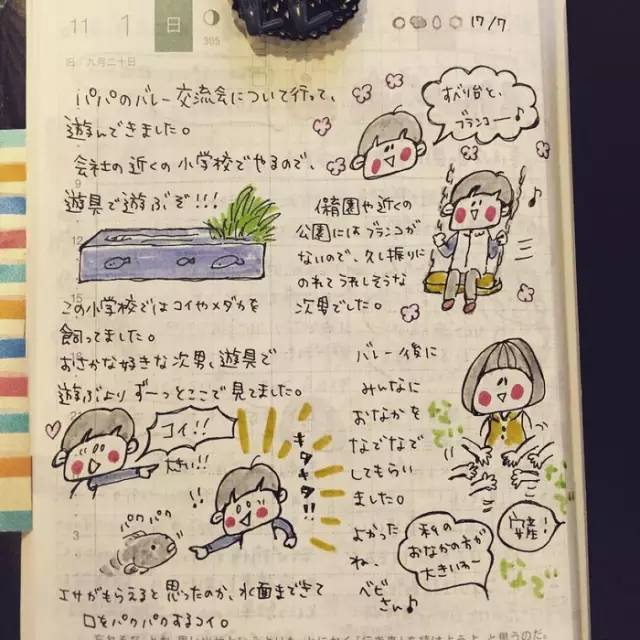 11
1
日
305
17/7
旧 九月二十日
パパのバレー交流会について行って、
遊んできました。
会社の近くの小学校でやるので、
遊具で遊ぶぞ!!!
9
12
15
この小学校ではコイやメダカを
飼ってました。
おさかな好きな次男、遊具で
遊ぶより ずーっとここで見てました。
コイ!!
大きい!!
キタキタ!!
!!
パクパク
3
エサがもらえると思ったのか、水面まできて
口をパクパクするコイ。
すべり台と、
ブランコー♪
♪
保育園や近くの
公園にはブランコが
ないので、久し振りに
のれてうれしそうな
次男でした。
バレー後に
みんなに
おなかを
なでなで
してもらい
ました。
よかった
ね、
ベビ
さん♪
なで
なで
安産!
私の
おなかの方が
大きいわ〜